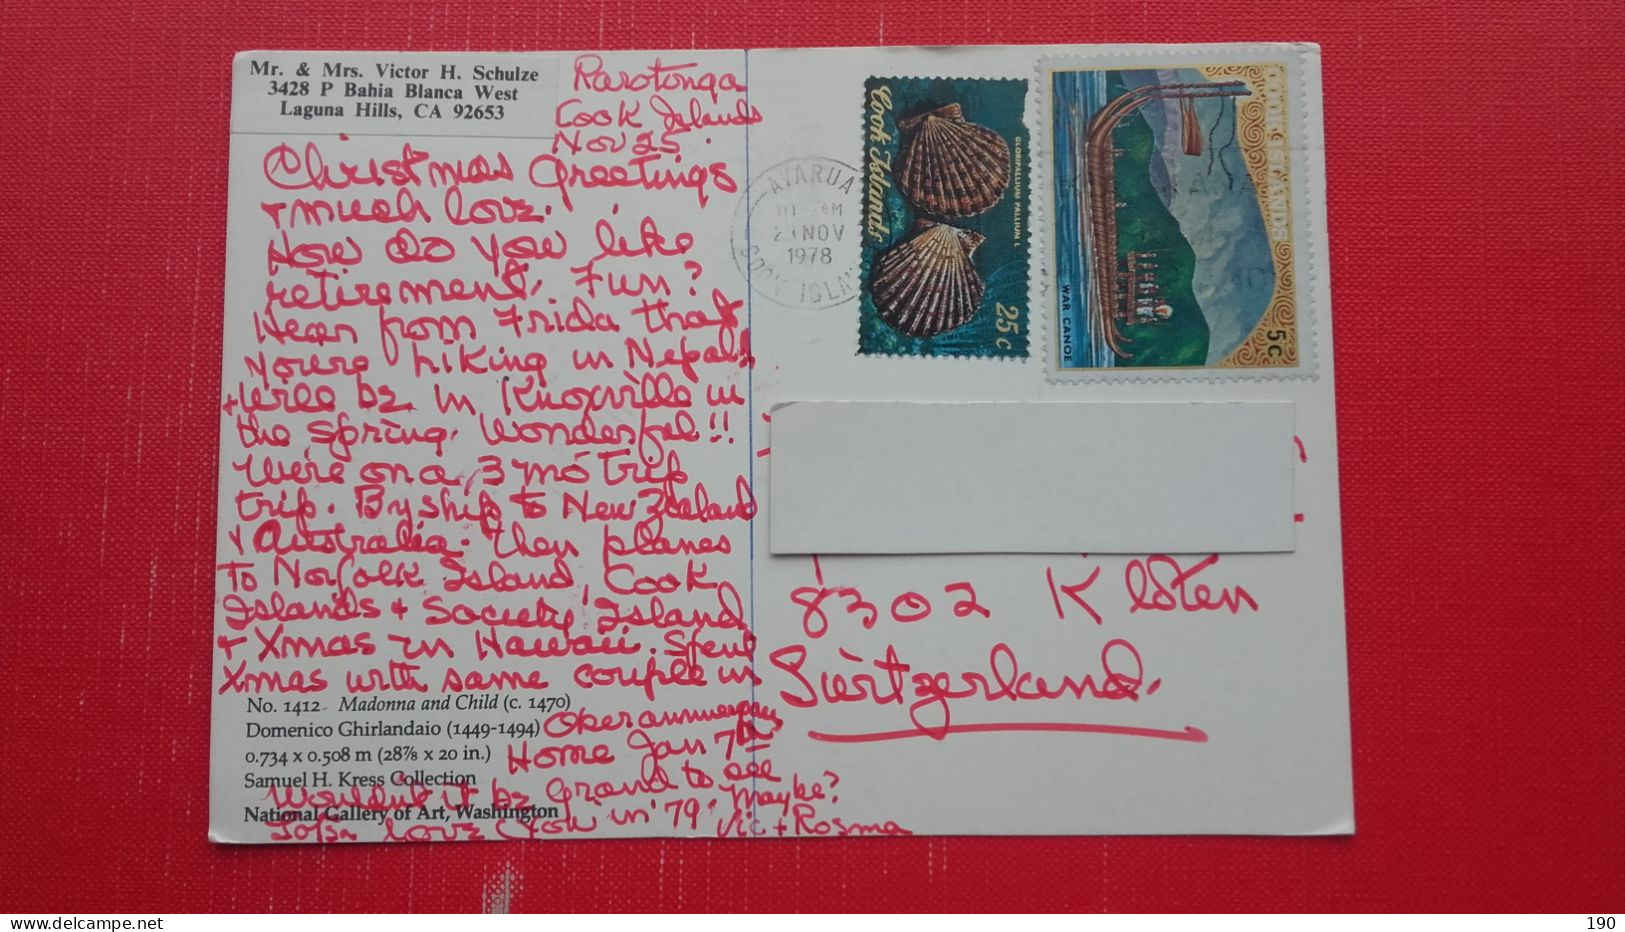 Mr. & Mrs. Victor H. Schulze
3428 P Bahia Blanca West
Laguna Hills, CA 92653
Rarotonga
Cook Islands
Nov 25.
Christmas Greetings
+ much love.
How do you like
retirement, Fun?
Hear from Frida that
you're hiking in Nepal!!
+ will be in Knoxville in
the Spring. Wonderful!!
We're on a 3 mo trip
trip. By ship to New Zealand
+ Australia. then planes
to Norfolk Island, Cook
Islands + Society Island
+ Xmas in Hawaii. Spent
Xmas with same couple in
Oberammergau
Home Jan 7th
Wouldn't it be grand to see
you in '79 Maybe?
love Vic + Rosma
No. 1412 Madonna and Child (c. 1470)
Domenico Ghirlandaio (1449-1494)
0.734 x 0.508 m (28⅞ x 20 in.)
Samuel H. Kress Collection
National Gallery of Art, Washington
AVARUA
10 - AM
NOV
1978
COOK ISLAN
Cook Islands
GLORIPALLIUM PALLIUM L.
25c
COOK ISLANDS
WAR CANOE
5c
8302 Kloten
Switzerland.
190